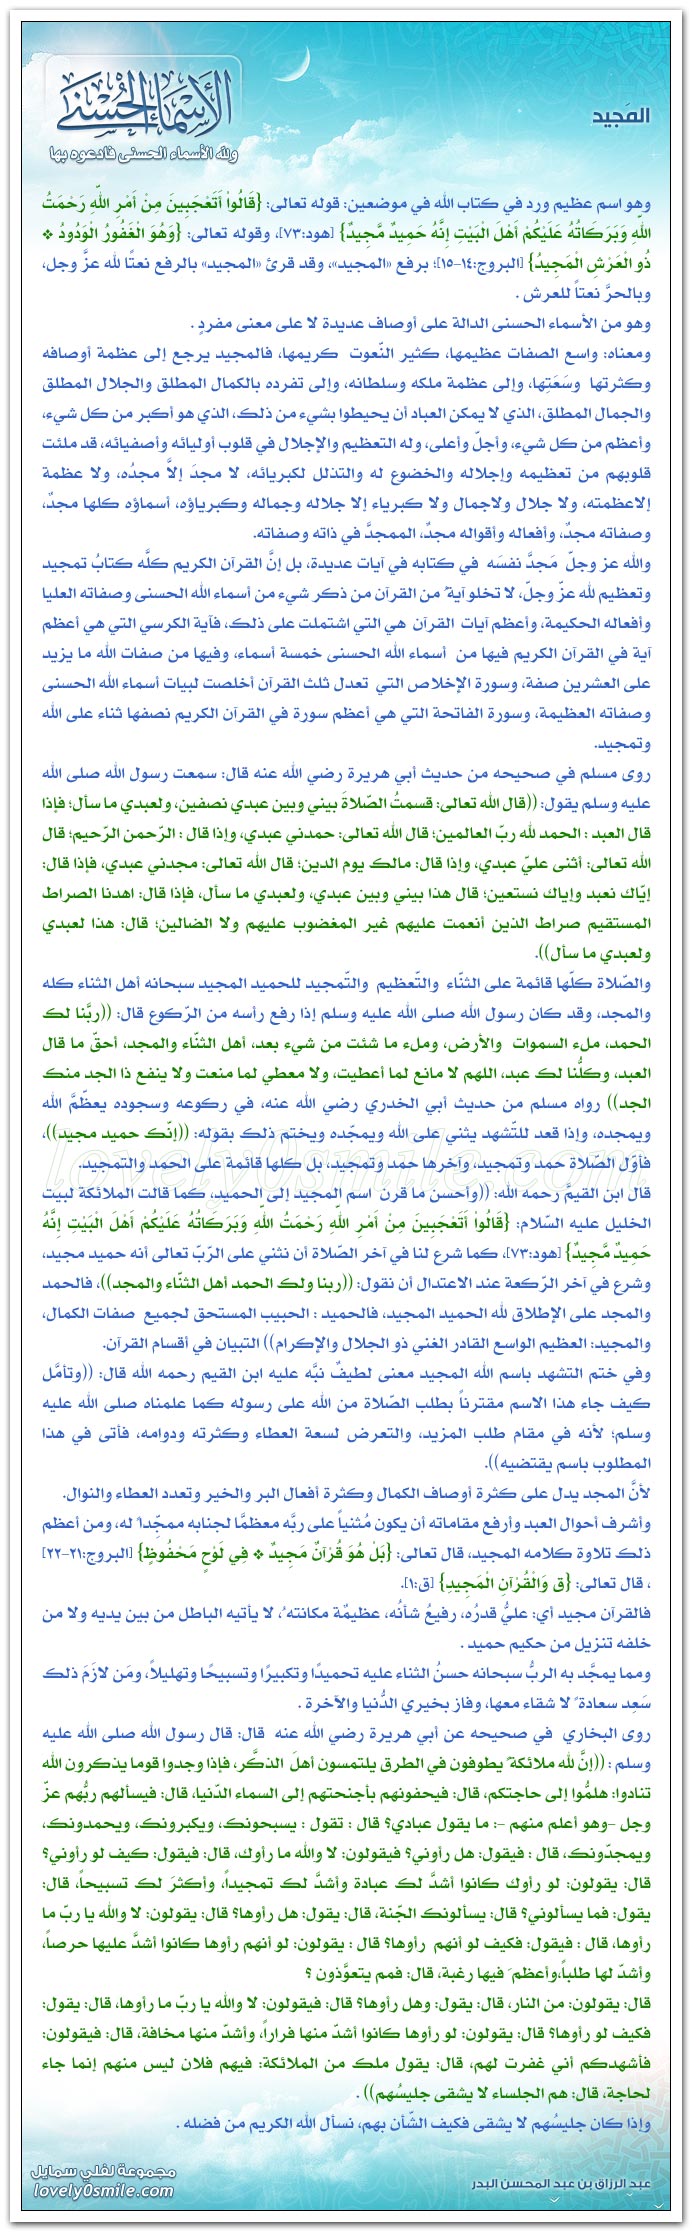 الأسماء الحسنى
ولله الأسماء الحسنى فادعوه بها
المَجيد
وهو اسم عظيم ورد في كتاب الله في موضعين: قوله تعالى: {قَالُواْ أَتَعْجَبِينَ مِنْ أَمْرِ اللّهِ رَحْمَتُ
اللّهِ وَبَرَكَاتُهُ عَلَيْكُمْ أَهْلَ الْبَيْتِ إِنَّهُ حَمِيدٌ مَّجِيدٌ} [هود:٧٣]، وقوله تعالى: {وَهُوَ الْغَفُورُ الْوَدُودُ ❖
ذُو الْعَرْشِ الْمَجِيدُ} [البروج:١٤-١٥]؛ برفع «المجيد»، وقد قرئ «المجيد» بالرفع نعتًا لله عزَّ وجل،
وبالجرَّ نعتاً للعرش .
وهو من الأسماء الحسنى الدالة على أوصاف عديدة لا على معنى مفردٍ .
ومعناه: واسع الصفات عظيمها، كثير النّعوت كريمها، فالمجيد يرجع إلى عظمة أوصافه
وكثرتها وسَعَتِها، وإلى عظمة ملكه وسلطانه، وإلى تفرده بالكمال المطلق والجلال المطلق
والجمال المطلق، الذي لا يمكن العباد أن يحيطوا بشيء من ذلك، الذي هو أكبر من كل شيء،
وأعظم من كل شيء، وأجلّ وأعلى، وله التعظيم والإجلال في قلوب أوليائه وأصفيائه، قد ملئت
قلوبهم من تعظيمه وإجلاله والخضوع له والتذلل لكبريائه، لا مجدَ إلاَّ مجدُه، ولا عظمة
إلاعظمته، ولا جلال ولاجمال ولا كبرياء إلا جلاله وجماله وكبرياؤه، أسماؤه كلها مجدٌ،
وصفاته مجدٌ، وأفعاله وأقواله مجدٌ، الممجدَّ في ذاته وصفاته.
والله عز وجلّ مَجدَّ نفسَه في كتابه في آيات عديدة، بل إنَّ القرآن الكريم كلَّه كتابُ تمجيد
وتعظيم لله عزّ وجلّ، لا تخلو آيةٌ من القرآن من ذكر شيء من أسماء الله الحسنى وصفاته العليا
وأفعاله الحكيمة، وأعظم آيات القرآن هي التي اشتملت على ذلك، فآية الكرسي التي هي أعظم
آية في القرآن الكريم فيها من أسماء الله الحسنى خمسة أسماء، وفيها من صفات الله ما يزيد
على العشرين صفة، وسورة الإخلاص التي تعدل ثلث القرآن أخلصت لبيات أسماء الله الحسنى
وصفاته العظيمة، وسورة الفاتحة التي هي أعظم سورة في القرآن الكريم نصفها ثناء على الله
وتمجيد.
روى مسلم في صحيحه من حديث أبي هريرة رضي الله عنه قال: سمعت رسول الله صلى الله
عليه وسلم يقول: ((قال الله تعالى: قسمتُ الصّلاةَ بيني وبين عبدي نصفين، ولعبدي ما سأل؛ فإذا
قال العبد : الحمد لله ربّ العالمين؛ قال الله تعالى: حمدني عبدي، وإذا قال : الرّحمن الرّحيم؛ قال
الله تعالى: أثنى عليّ عبدي، وإذا قال: مالك يوم الدين؛ قال الله تعالى: مجدني عبدي، فإذا قال:
إيّاك نعبد وإياك نستعين؛ قال هذا بيني وبين عبدي، ولعبدي ما سأل، فإذا قال: اهدنا الصراط
المستقيم صراط الذين أنعمت عليهم غير المغضوب عليهم ولا الضالين؛ قال: هذا لعبدي
ولعبدي ما سأل)).
والصّلاة كلّها قائمة على الثنّاء والتّعظيم والتّمجيد للحميد المجيد سبحانه أهل الثناء كله
والمجد، وقد كان رسول الله صلى الله عليه وسلم إذا رفع رأسه من الرّكوع قال: ((ربَّنا لك
الحمد، ملء السموات والأرض، وملء ما شئت من شيء بعد، أهل الثنّاء والمجد، أحقّ ما قال
العبد، وكلُّنا لك عبد، اللهم لا مانع لما أعطيت، ولا معطي لما منعت ولا ينفع ذا الجد منك
الجد)) رواه مسلم من حديث أبي الخدري رضي الله عنه، في ركوعه وسجوده يعظّمَّ الله
ويمجده، وإذا قعد للتّشهد يثني على الله ويمجّده ويختم ذلك بقوله: ((إنّك حميد مجيد))،
فأوّل الصّلاة حمد وتمجيد، وآخرها حمد وتمجيد، بل كلها قائمة على الحمد والتمجيد.
قال ابن القيمَّ رحمه الله: ((وأحسن ما قرن اسم المجيد إلى الحميد، كما قالت الملائكة لبيت
الخليل عليه السّلام: {قَالُواْ أَتَعْجَبِينَ مِنْ أَمْرِ اللّهِ رَحْمَتُ اللّهِ وَبَرَكَاتُهُ عَلَيْكُمْ أَهْلَ الْبَيْتِ إِنَّهُ
حَمِيدٌ مَّجِيدٌ} [هود:٧٣]، كما شرع لنا في آخر الصّلاة أن نثني على الرّبّ تعالى أنه حميد مجيد،
وشرع في آخر الرّكعة عند الاعتدال أن نقول: ((ربنا ولك الحمد أهل الثنّاء والمجد))، فالحمد
والمجد على الإطلاق لله الحميد المجيد، فالحميد : الحبيب المستحق لجميع صفات الكمال،
والمجيد: العظيم الواسع القادر الغني ذو الجلال والإكرام)) التبيان في أقسام القرآن.
وفي ختم التشهد باسم الله المجيد معنى لطيفٌ نبَّه عليه ابن القيم رحمه الله قال: ((وتأمَّل
كيف جاء هذا الاسم مقترناً بطلب الصّلاة من الله على رسوله كما علمناه صلى الله عليه
وسلم؛ لأنه في مقام طلب المزيد، والتعرض لسعة العطاء وكثرته ودوامه، فأتى في هذا
المطلوب باسم يقتضيه)).
لأنَّ المجد يدل على كثرة أوصاف الكمال وكثرة أفعال البر والخير وتعدد العطاء والنوال.
وأشرف أحوال العبد وأرفع مقاماته أن يكون مُثنياً على ربَّه معظمًّا لجنابه ممجِّداً له، ومن أعظم
ذلك تلاوة كلامه المجيد، قال تعالى: {بَلْ هُوَ قُرْآنٌ مَجِيدٌ ❖ فِي لَوْحٍ مَحْفُوظٍ} [البروج:٢١-٢٢]
، قال تعالى: {ق وَالْقُرْآنِ الْمَجِيدِ} [ق:١].
فالقرآن مجيد أي: عليُّ قدرُه، رفيعُ شأنُه، عظيمٌة مكانتهُ، لا يأتيه الباطل من بين يديه ولا من
خلفه تنزيل من حكيم حميد .
ومما يمجَّد به الربُّ سبحانه حسنُ الثناء عليه تحميدًا وتكبيرًا وتسبيحًا وتهليلاً، ومَن لازَمَ ذلك
سَعِد سعادةً لا شقاء معها، وفاز بخيري الدُّنيا والآخرة .
روى البخاري في صحيحه عن أبي هريرة رضي الله عنه قال: قال رسول الله صلى الله عليه
وسلم : ((إنَّ لله ملائكةٌ يطوفون في الطرق يلتمسون أهلَ الذكَّر، فإذا وجدوا قوما يذكرون الله
تنادوا: هلمُّوا إلى حاجتكم، قال: فيحفونهم بأجنحتهم إلى السماء الدّنيا، قال: فيسألهم ربُّهم عزّ
وجل -وهو أعلم منهم -: ما يقول عبادي؟ قال : تقول : يسبحونك، ويكبرونك، ويحمدونك،
ويمجدّونك، قال : فيقول: هل رأوني؟ فيقولون: لا والله ما رأوك، قال: فيقول: كيف لو رأوني؟
قال: يقولون: لو رأوك كانوا أشدَّ لك عبادة وأشدَّ لك تمجيداً، وأكثرَ لك تسبيحاً، قال:
يقول: فما يسألوني؟ قال: يسألونك الجّنة، قال: يقول: هل رأوها؟ قال: يقولون: لا والله يا ربّ ما
رأوها، قال : فيقول: فكيف لو أنهم رأوها؟ قال : يقولون: لو أنهم رأوها كانوا أشدَّ عليها حرصاً،
وأشدّ لها طلباً،وأعظمَ فيها رغبة، قال: فمم يتعوَّذون ؟
قال: يقولون: من النار، قال: يقول: وهل رأوها؟ قال: فيقولون: لا والله يا ربّ ما رأوها، قال: يقول:
فكيف لو رأوها؟ قال: يقولون: لو رأوها كانوا أشدّ منها فراراً، وأشدّ منها مخافة، قال: فيقولون:
فأشهدكم أني غفرت لهم، قال: يقول ملك من الملائكة: فيهم فلان ليس منهم إنما جاء
لحاجة، قال: هم الجلساء لا يشقى جليسُهم)) .
وإذا كان جليسُهم لا يشقى فكيف الشّأن بهم، نسأل الله الكريم من فضله .
lovely0smile.com
عبد الرزاق بن عبد المحسن البدر
مجموعة لفلي سمايل
lovely0smile.com